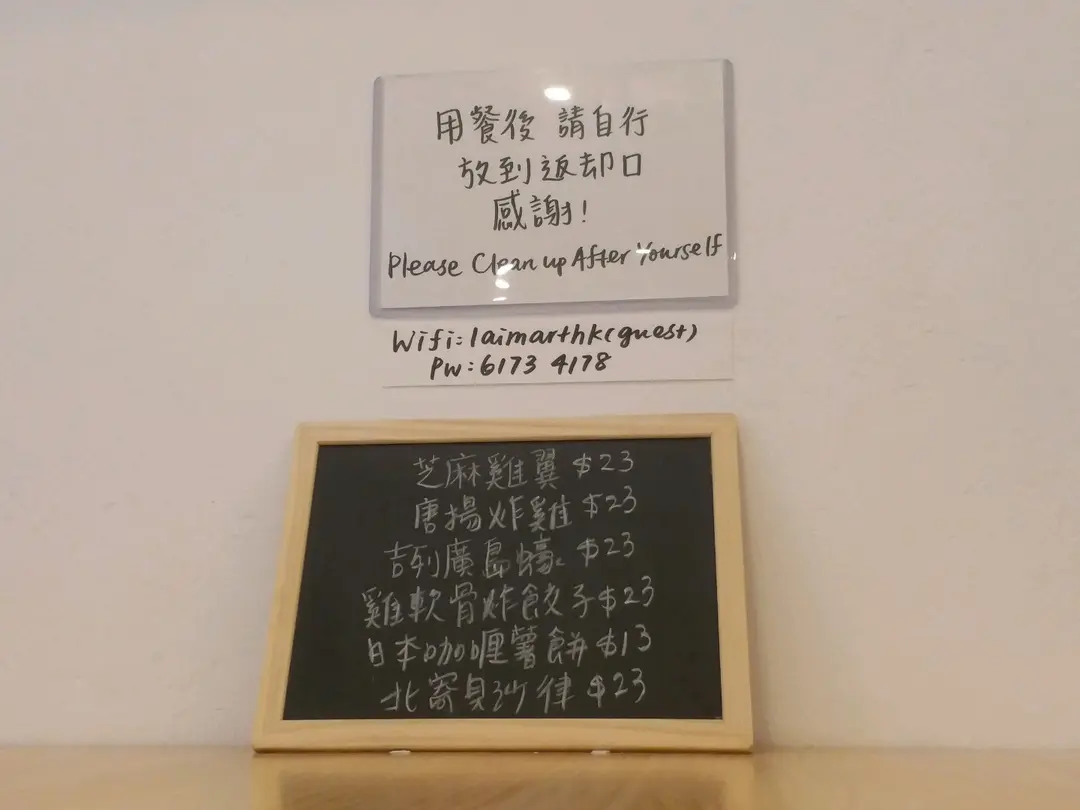 用餐後 請自行
放到返却口
感謝!
Please Clean up After Yourself
Wifi: laimarthk(guest)
Pw: 6173 4178
芝麻雞翼 $23
唐揚炸雞 $23
吉列廣島蠔 $23
雞軟骨炸餃子 $23
日本咖喱薯餅 $13
北寄貝沙律 $23